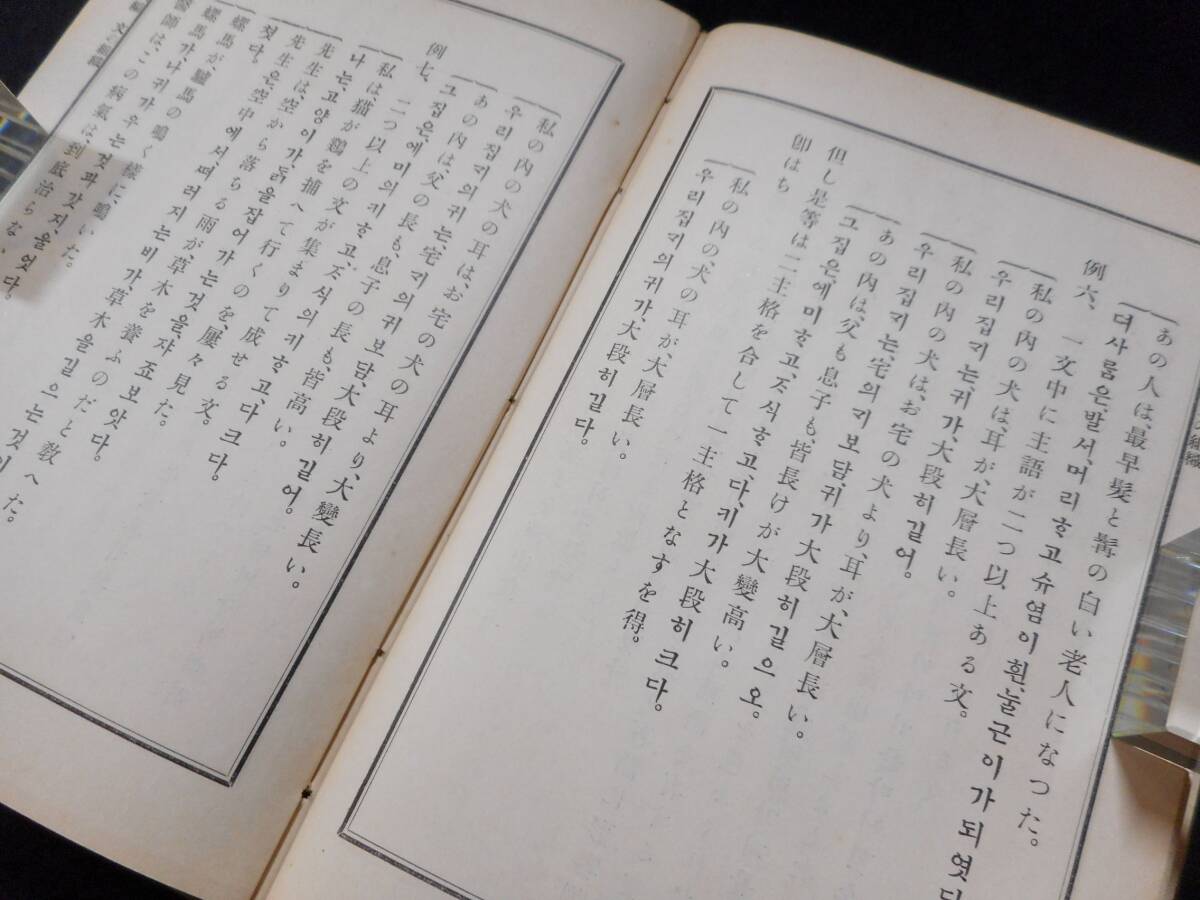 あの人は、最早髮と髯の白い老人になつた。
뎌사ᄅᆞᆷ은、발서、머리ᄒᆞ고슈염이흰、눌근이가되엿다
例六、 一文中に主語が二つ以上ある文。
私の內の犬は、耳が、大層長い。
우리집ᄀᆡ는、귀가、大段히길어。
私の內の犬は、お宅の犬より、耳が、大層長い。
우리집ᄀᆡ는、宅의ᄀᆡ보담귀가大段히길으오。
あの內は、父も息子も、皆長けが大變高い。
그집은、에미ᄒᆞ고、ᄌᆞ식ᄒᆞ고、다、키가大段히크다。
但し是等は二主格を合して一主格となすを得。
卽はち
私の內の、犬の耳が、大層長い。
우리집ᄀᆡ의귀가、大段히길다。
私の內の犬の耳は、お宅の犬の耳より、大變長い。
우리집ᄀᆡ의귀는、宅ᄀᆡ의귀보담、大段히길어。
あの內は、父の長も、息子の長も、皆高い。
그집은、에미의키ᄒᆞ고、ᄌᆞ식의키ᄒᆞ고、다크다。
例七、 二つ以上の文が集まりて成せる文。
私は猫が鷄を捕へて行くのを、屢々見た。
나는、고양이가、ᄃᆞᆰ을잡어가는것을、자죠보앗다。
先生は、空から落ちる雨が、草木を養ふのだと敎へた。
先生은、空中에서ᄯᅥ러지는비가、草木을길으는것이
첫다。
騾馬が、驢馬の鳴く樣に鳴いた。
騾馬가、나귀가우는것과갓치、울엇다。
醫師は、この病氣は、到底治らない